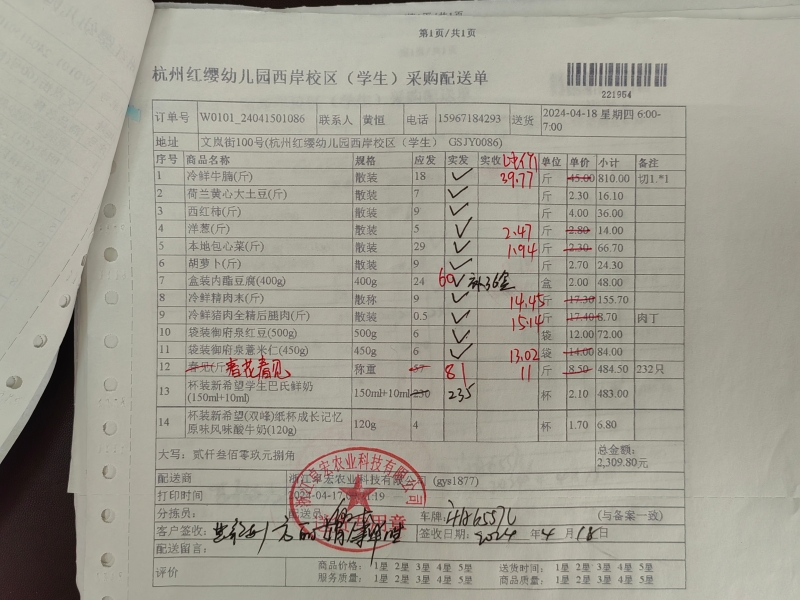 第1页/共1页
杭州红缨幼儿园西岸校区（学生）采购配送单
221954
订单号 W0101_24041501086 联系人 黄恒 电话 15967184293 送货 2024-04-18 星期四 6:00-7:00
地址 文岚街100号(杭州红缨幼儿园西岸校区（学生） GSJY0086)
序号 商品名称 规格 应发 实发 实收 单位 单价 小计 备注
1 冷鲜牛腩(斤) 散装 18 ✓ 39.77 斤 45.00 810.00 切1.*1
2 荷兰黄心大土豆(斤) 散装 7 ✓ 斤 2.30 16.10
3 西红柿(斤) 散装 9 ✓ 斤 4.00 36.00
4 洋葱(斤) 散装 5 ✓ 2.47 斤 2.80 14.00
5 本地包心菜(斤) 散装 29 ✓ 1.94 斤 2.30 66.70
6 胡萝卜(斤) 散装 9 ✓ 斤 2.70 24.30
7 盒装内酯豆腐(400g) 400g 24 60 ✓ 补36盒 盒 2.00 48.00
8 冷鲜精肉末(斤) 散称 9 ✓ 14.45 斤 17.30 155.70
9 冷鲜猪肉全精后腿肉(斤) 散装 0.5 ✓ 15.14 斤 17.40 8.70 肉丁
10 袋装御府泉红豆(500g) 500g 6 ✓ 袋 12.00 72.00
11 袋装御府泉薏米仁(450g) 450g 6 ✓ 13.02 袋 14.00 84.00
12 春见(斤) 春花春见 称重 57 81 11 斤 8.50 484.50 232只
13 杯装新希望学生巴氏鲜奶(150ml+10ml) 150ml+10ml 230 235 杯 2.10 483.00
14 杯装新希望(双峰)纸杯成长记忆原味风味酸牛奶(120g) 120g 4 杯 1.70 6.80
大写：贰仟叁佰零玖元捌角 总金额：2,309.80元
配送商 浙江卓宏农业科技有限公司 (gys1877)
打印时间 2024-04-17
分拣员： 配送员 车牌： (与备案一致)
客户签收： 签收日期：2024年4月18日
配送留言：
评价 商品价格： 1星 2星 3星 4星 5星 送货时间： 1星 2星 3星 4星 5星
服务质量： 1星 2星 3星 4星 5星 商品质量： 1星 2星 3星 4星 5星